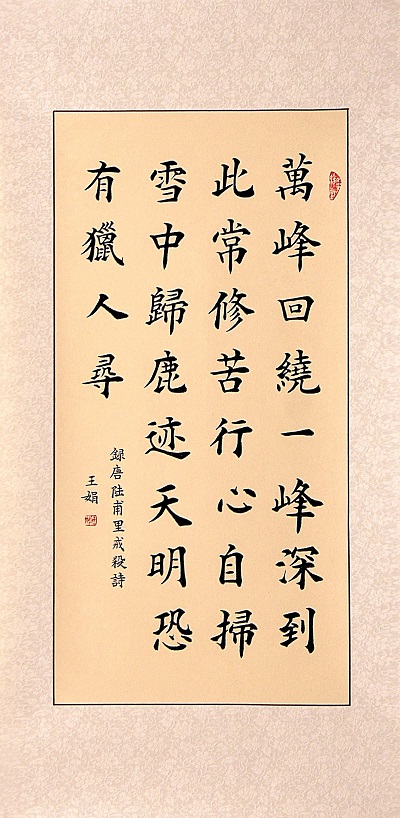 萬峰回繞一峰深到
此常修苦行心自掃
雪中歸鹿迹天明恐
有獵人尋
録唐陆甫里戒殺詩
王娟